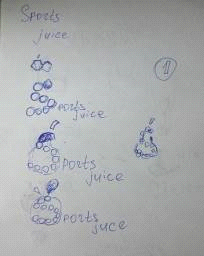 Sports
juice
1
ports
juice
ports
juice
ports
juce